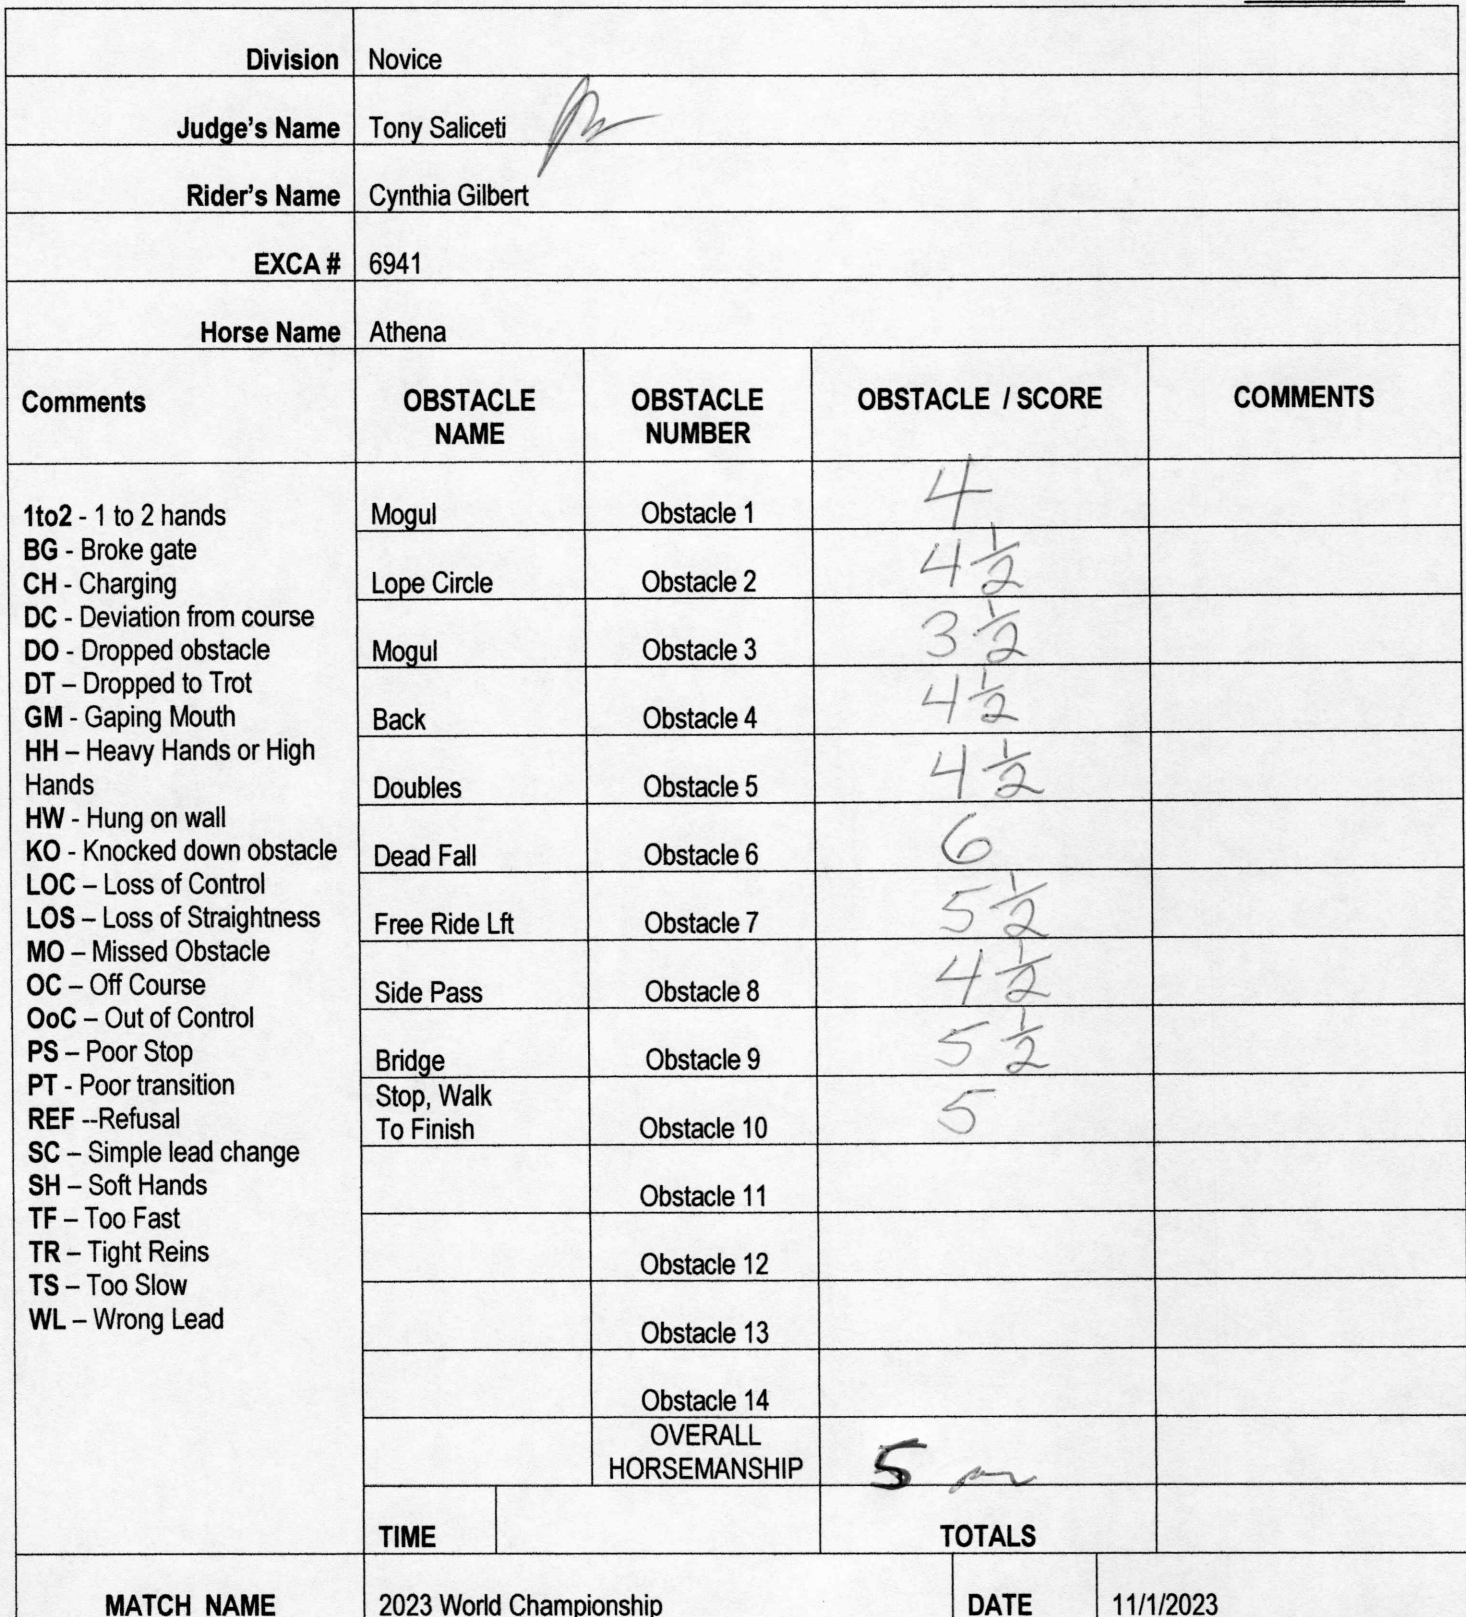 Division Novice
Judge's Name Tony Saliceti
Rider's Name Cynthia Gilbert
EXCA # 6941
Horse Name Athena
Comments OBSTACLE NAME OBSTACLE NUMBER OBSTACLE / SCORE COMMENTS
1to2 - 1 to 2 hands
BG - Broke gate
CH - Charging
DC - Deviation from course
DO - Dropped obstacle
DT – Dropped to Trot
GM - Gaping Mouth
HH – Heavy Hands or High
Hands
HW - Hung on wall
KO - Knocked down obstacle
LOC – Loss of Control
LOS – Loss of Straightness
MO – Missed Obstacle
OC – Off Course
OoC – Out of Control
PS – Poor Stop
PT - Poor transition
REF --Refusal
SC – Simple lead change
SH – Soft Hands
TF – Too Fast
TR – Tight Reins
TS – Too Slow
WL – Wrong Lead
Mogul Obstacle 1 4
Lope Circle Obstacle 2 4 1/2
Mogul Obstacle 3 3 1/2
Back Obstacle 4 4 1/2
Doubles Obstacle 5 4 1/2
Dead Fall Obstacle 6 6
Free Ride Lft Obstacle 7 5 1/2
Side Pass Obstacle 8 4 1/2
Bridge Obstacle 9 5 1/2
Stop, Walk
To Finish Obstacle 10 5
Obstacle 11
Obstacle 12
Obstacle 13
Obstacle 14
OVERALL
HORSEMANSHIP 5
TIME TOTALS
MATCH NAME 2023 World Championship DATE 11/1/2023